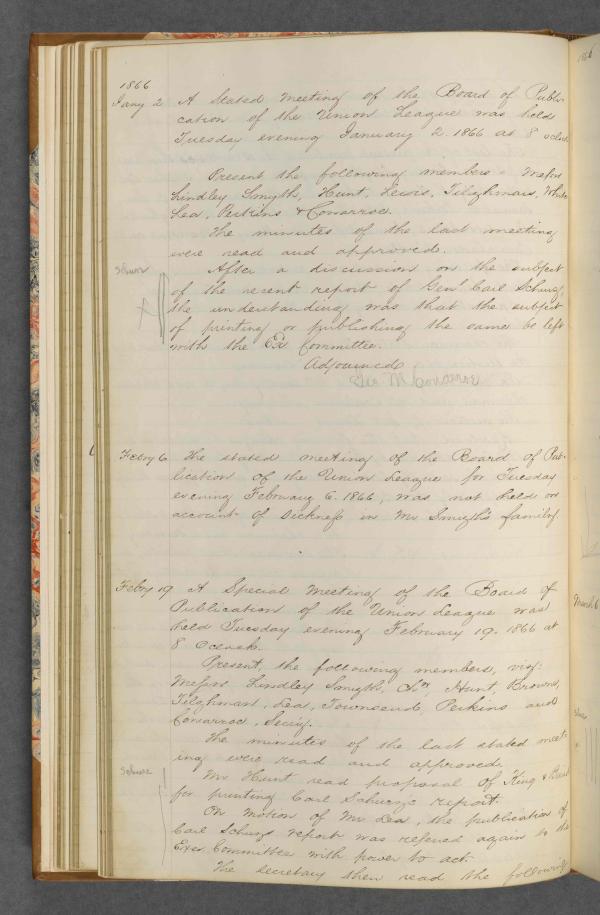 1866
Jany 2 A Stated meeting of the Board of Publi-
cation of the Union League was held
Tuesday evening January 2. 1866 at 8 oclock
Present the following members - Messrs
Lindley Smyth, Hunt, Lewis, Tilghman, White
Lea, Perkins & Conarroe.
The minutes of the last meeting
were read and approved.
Schurz
After a discussion on the subject
of the recent report of Genl Carl Schurz,
the understanding was that the subject
of printing or publishing the same be left
with the Ex Committee.
Adjourned
Geo M Conarroe
Febry 6 The stated meeting of the Board of Pub-
lication of the Union League for Tuesday
evening February 6. 1866, was not held on
account of sickness in Mr Smyth's family.
Febry 19 A Special meeting of the Board of
Publication of the Union League was
held Tuesday evening February 19. 1866 at
8 Oclock.
Present, the following members, viz:
Messrs Lindley Smyth, Hunt, Browne,
Tilghman, Lea, Townsend, Perkins and
Conarroe, Secy.
The minutes of the last stated meet-
ing were read and approved.
Schurz
Mr Hunt read proposal of King & Baird
for printing Carl Schurz's report.
On motion of Mr Lea, the publication of
Carl Schurz report was refered again to the
Exec Committee with power to act.
The secretary then read the following
1866
March 6